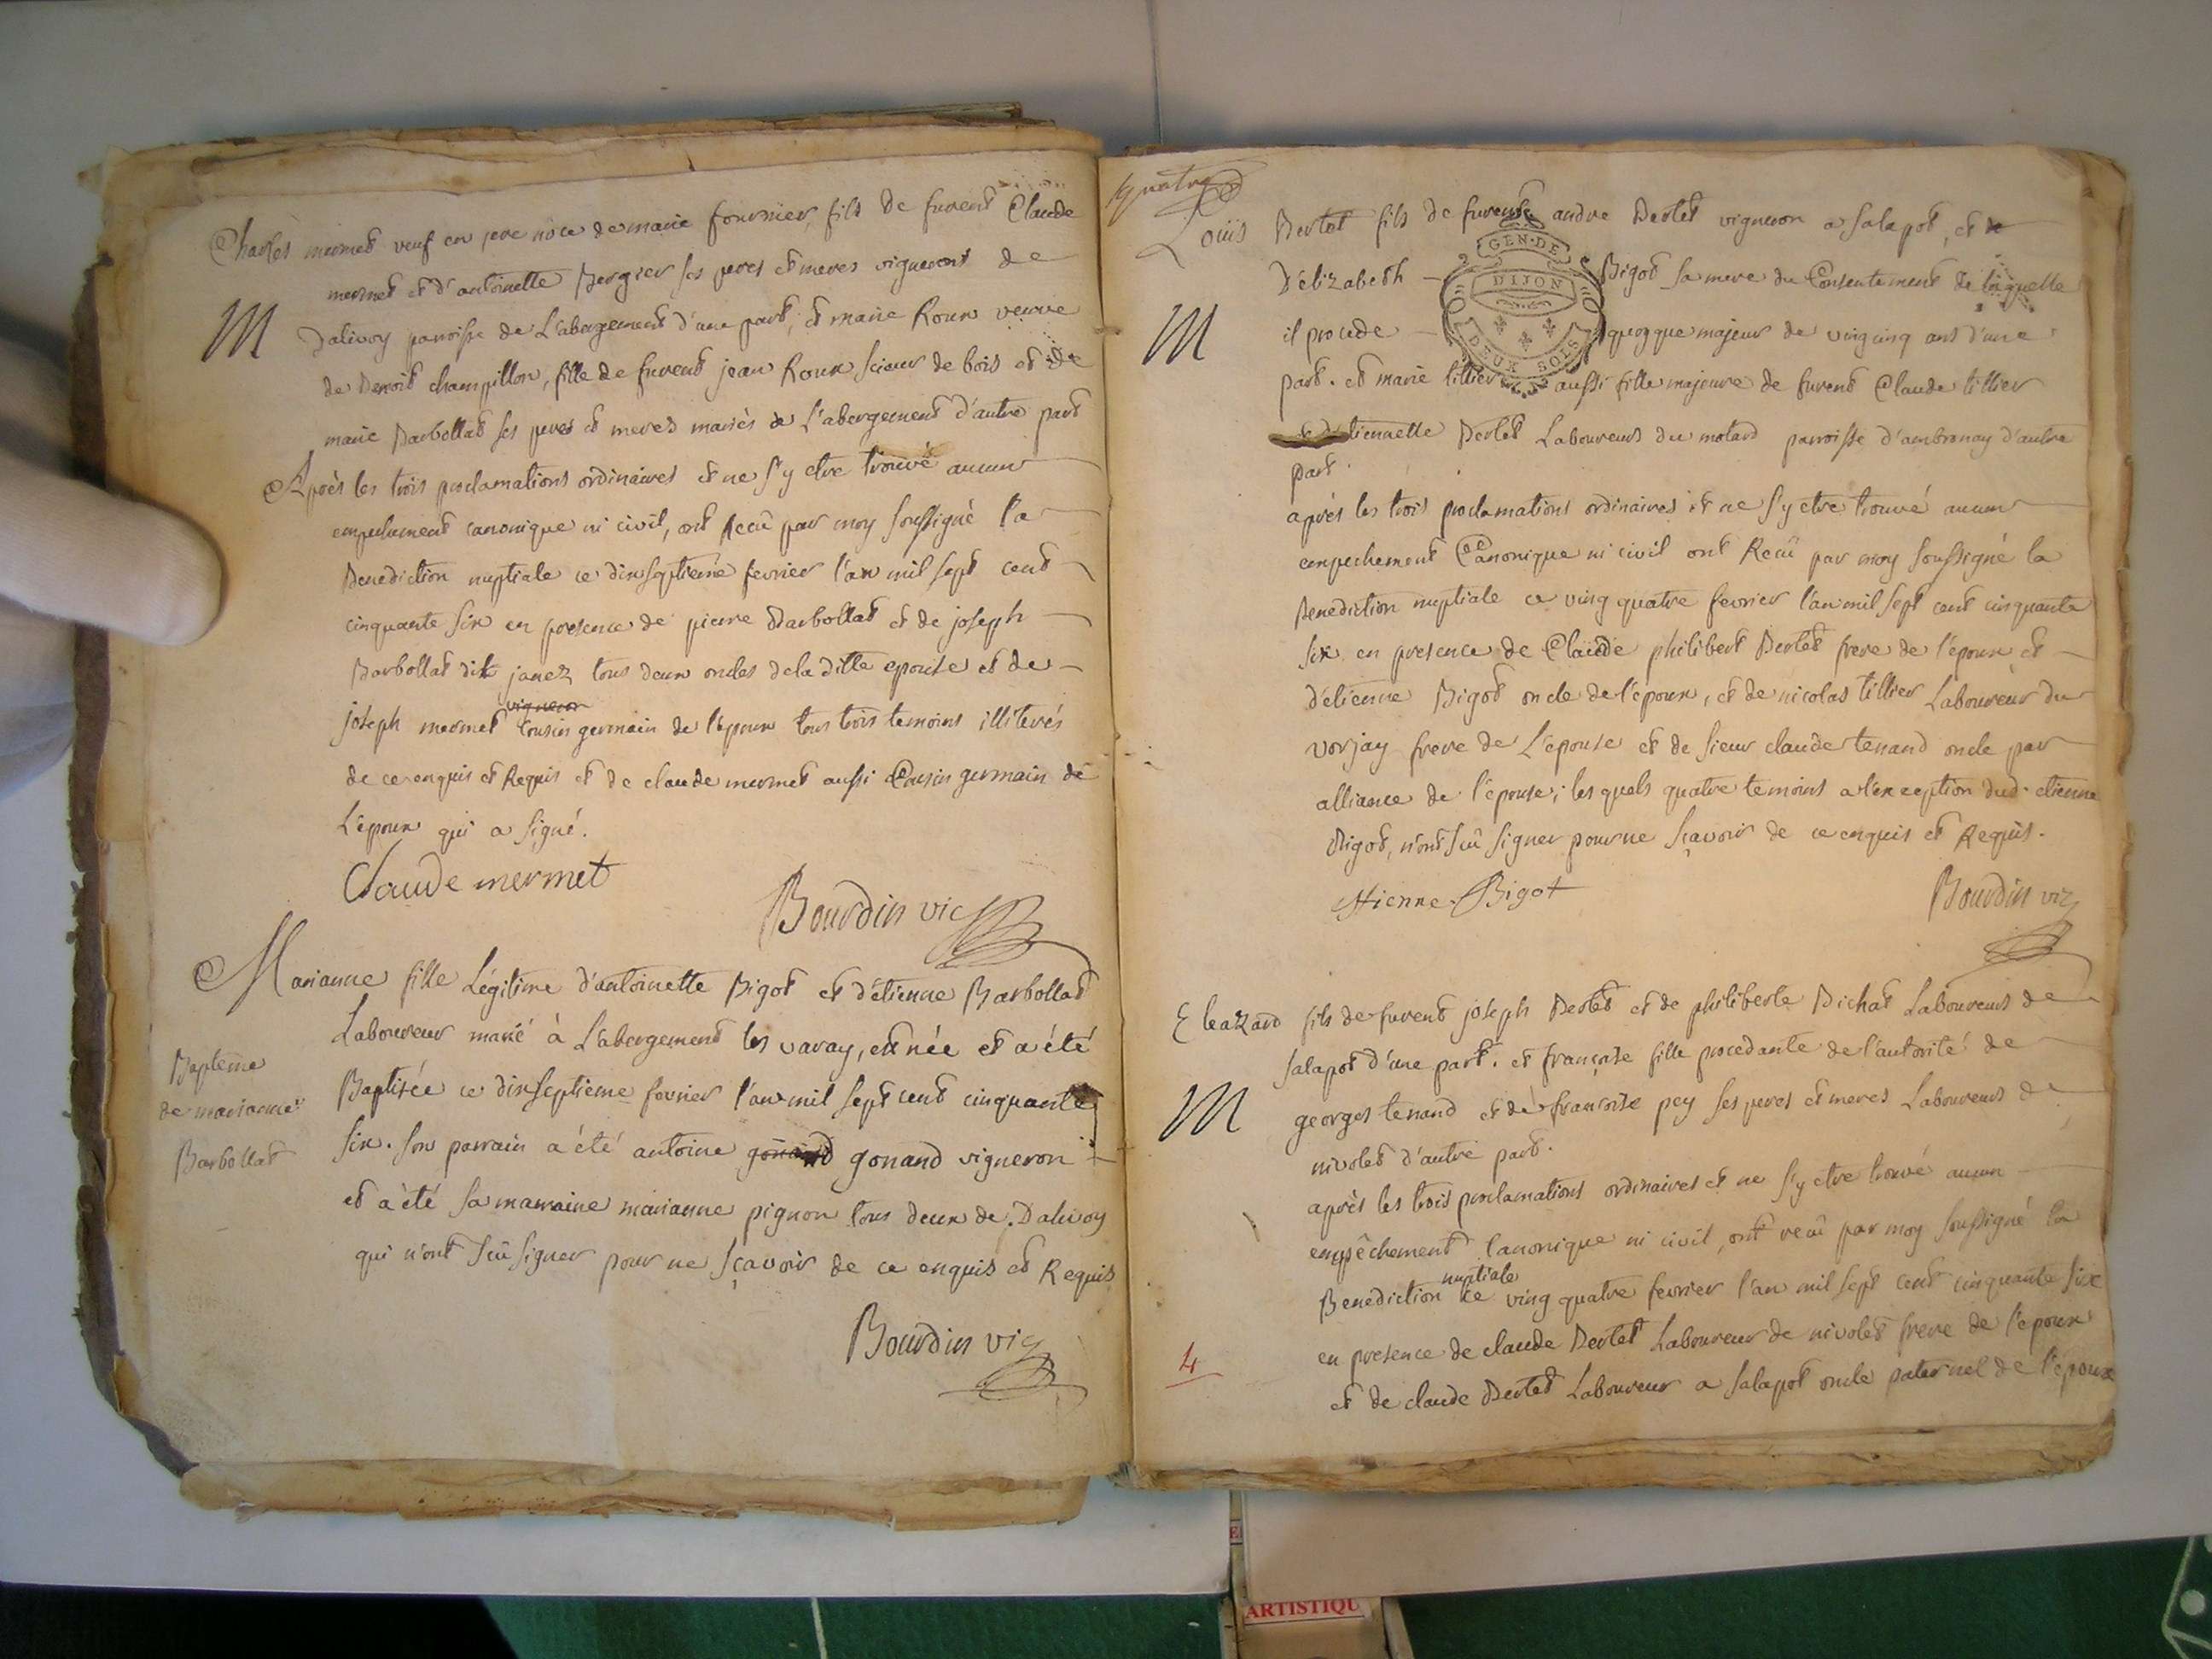 Charles mermet veuf en pre nôce de marie fournier, fils de furent Claude
mermet et d'antoinette Bergier ses peres et meres vignerons de
M
Dalivoy parroisse de L'abergement d'une part; et marie Roux veuve
de Benoit champillon, fille de furent jean Roux scieur de bois et de
marie Barbollat ses peres et meres mariés de L'abergement d'autre part
Après les trois proclamations ordinaires et ne s'y etre trouvé aucun
empechement canonique ni civil, ont Recû par moy soussigné la
Benediction nuptiale ce dixseptieme fevrier l'an mil sept cent
cinquante six en presence de pierre Barbollat et de joseph
Barbollat dit janez tous deux oncles de la ditte epouse et de
vigneron
joseph mermet Cousin germain de l'époux tous trois temoins illiterés
de ce enquis et Requis et de claude mermet aussi Cousin germain de
L'époux qui a signé.
Claude mermet
Bourdin vic
Marianne fille Légitime d'antoinette Bigot et d'étienne Barbollat
Laboureur marié à L'abergement les varay, est née et a été
Bapteme
de marianne
Barbollat
Baptisée ce dixseptieme fevrier l'an mil sept cent cinquante
six. son parrain a été antoine gonand gonand vigneron
et a été sa marraine marianne pignon tous deux de Dalivoy
qui n'ont scû signer pour ne sçavoir de ce enquis et Requis
Bourdin vic
quatre
Loüis Bertet fils de furent andre Bertet vigneron a salapot, et
D'élizabeth Bigot sa mere du Consentement de laquelle
GEN·DE
DIJON
DEUX SOLS
M
il procede quoyque majeur de vingcinq ans d'une
part. et marie tillier aussi fille majeure de furent Claude tillier
et d'étiennette Bertet Laboureurs du molard parroisse d'ambronay d'autre
part.
après les trois proclamations ordinaires et ne s'y etre trouvé aucun
empechement Canonique ni civil ont Recû par moy soussigné la
Benediction nuptiale ce ving quatre fevrier l'an mil sept cent cinquante
six en presence de Claude philibert Bertet frere de l'époux et
d'étienne Bigot oncle de l'époux, et de nicolas tillier Laboureur du
vorjay frere de L'épouse et de sieur claude tenand oncle par
alliance de l'épouse; les quels quatre temoins a l'exception dud. etienne
Bigot, n'ont scû signer pour ne sçavoir de ce enquis et Requis.
Etienne Bigot
Bourdin vic
Eleazard fils de furent joseph Bertet et de philiberte Bichat Laboureurs de
salapot d'une part. et françoise fille procedante de l'autorité de
M
georges tenand et de françoise pey ses peres et meres Laboureurs de
nivolet d'autre part.
après les trois proclamations ordinaires et ne s'y etre trouvé aucun
empêchement Canonique ni civil, ont recû par moy soussigné la
nuptiale
Benediction ce ving quatre fevrier l'an mil sept cent cinquante six
en presence de claude Bertet Laboureur de nivolet frere de l'époux
et de claude Bertet Laboureur a salapot oncle paternel de l'époux
4
ARTISTIQU